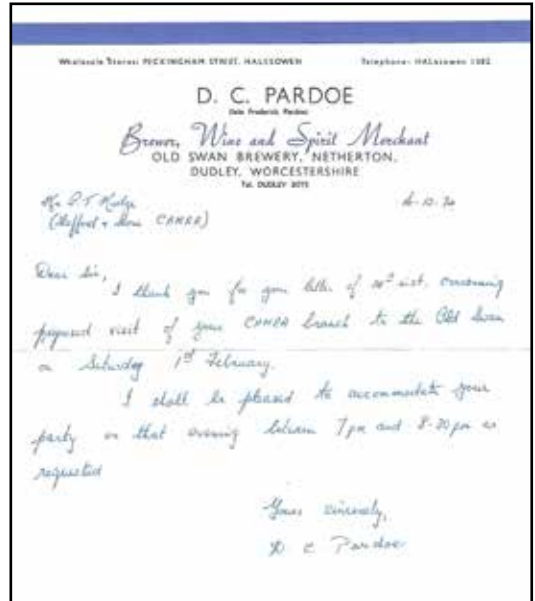 Wholesale Stores: PECKINGHAM STREET, HALESOWEN Telephone: HALesowen 1582
D. C. PARDOE
Brewer, Wine and Spirit Merchant
OLD SWAN BREWERY, NETHERTON,
DUDLEY, WORCESTERSHIRE
Tel. DUDLEY 3075
Mr P.T.
CAMRA)
Dear Sir,
I thank you for your letter of inst. concerning
proposed visit of your CAMRA branch to the Old Swan
on Saturday 1st February.
I shall be pleased to accommodate your
party on that evening between 7pm and 8-30pm as
requested
Yours sincerely,
D C Pardoe